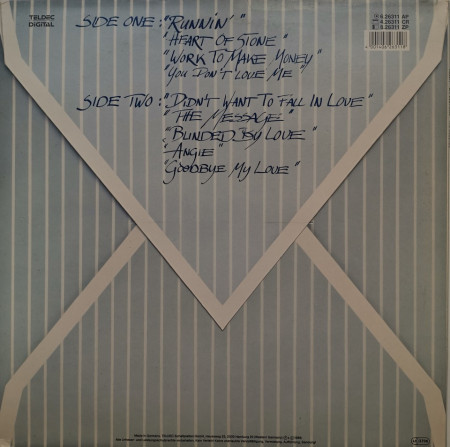 TELDEC
DIGITAL
SIDE ONE: "RUNNIN'"
"HEART OF STONE"
"WORK TO MAKE MONEY"
"YOU DON'T LOVE ME"
SIDE TWO: "DIDN'T WANT TO FALL IN LOVE"
"THE MESSAGE"
"BLINDED BY LOVE"
"ANGIE"
"GOODBYE MY LOVE"
6.26311 AP
6.26311 CR
8.26311 ZP